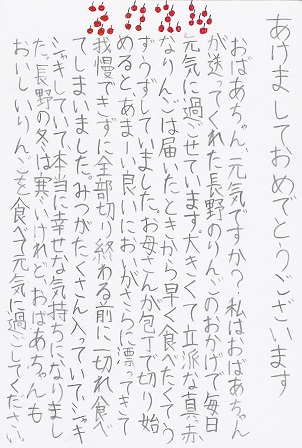 2026
あけましておめでとうござい
おばあちゃん、元気ですか?私はおばあちゃん
が送ってくれた長野のりんごのおかげで毎日
元気に過ごせています。大きくて立派な真赤
なりんごは届いたときから早く食べたくてう
ずうずしていました。お母さんが包丁で切り始
めると、あまーい良いにおいがさらに漂ってきて
我慢できずに全部切り終わる前に一切れ食べ
てしまいました。みつがたくさん入っていてシャキ
シャキしていて本当に幸せな気持ちになりまし
た。長野の冬は寒いけれど、おばあちゃんも
おいしいりんごを食べて元気に過ごしてください。